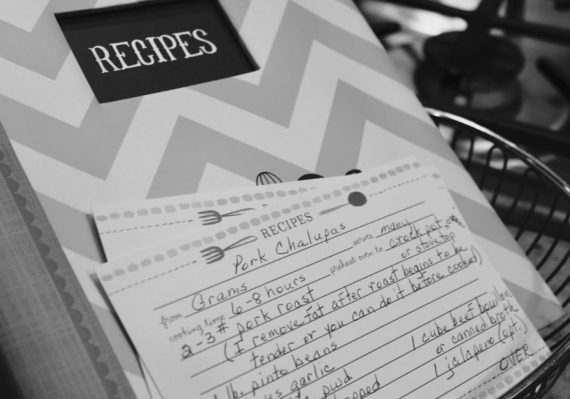 RECIPES
RECIPES
Pork Chalupas
serves many
from Grams
preheat oven to crock pot
or stove top
cooking time 6-8 hours
2-3# pork roast
(I remove fat after roast begins to be
tender or you can do it before cooked)
pinto beans
1 cube beef bouillon
garlic
or canned broth
pwd
1 jalapeno (opt.)
OVER